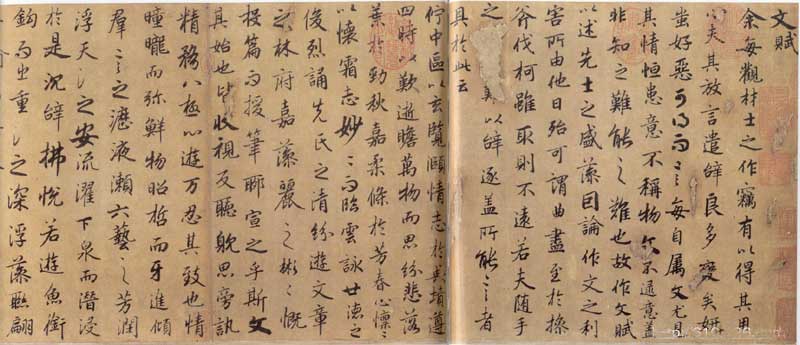 文賦
余每觀材士之作竊有以得其用
心夫其放言遣辭良多變矣妍
蚩好惡可得而言每自属文尤見
其情恒患意不稱物文不逮意蓋
非知之難能之難也故作文賦
以述先士之盛藻因論作文之利
害所由他日殆可謂曲盡至於操
斧伐柯雖取則不遠若夫随手
之難以辭逐盖所能言者
具於此云
佇中區以玄覽頤情志於典墳遵
四時以歎逝瞻萬物而思紛悲落
葉於勁秋嘉柔條於芳春心懍〻
以懷霜志妙〻而臨雲詠世德之
俊烈誦先氏之清紛遊文章
之林府嘉藻麗之彬〻慨
投篇而援筆聊宣之乎斯文
其始也皆收視反聽耽思旁訊
精騖八極心遊万刃其致也情
曈曨而弥鮮物昭晢而互進傾
群言之瀝液漱六藝之芳潤
浮天淵之安流濯下泉而潛浸
於是沉辭怫悅若遊魚銜
鈎而出重淵之深浮藻聯翩